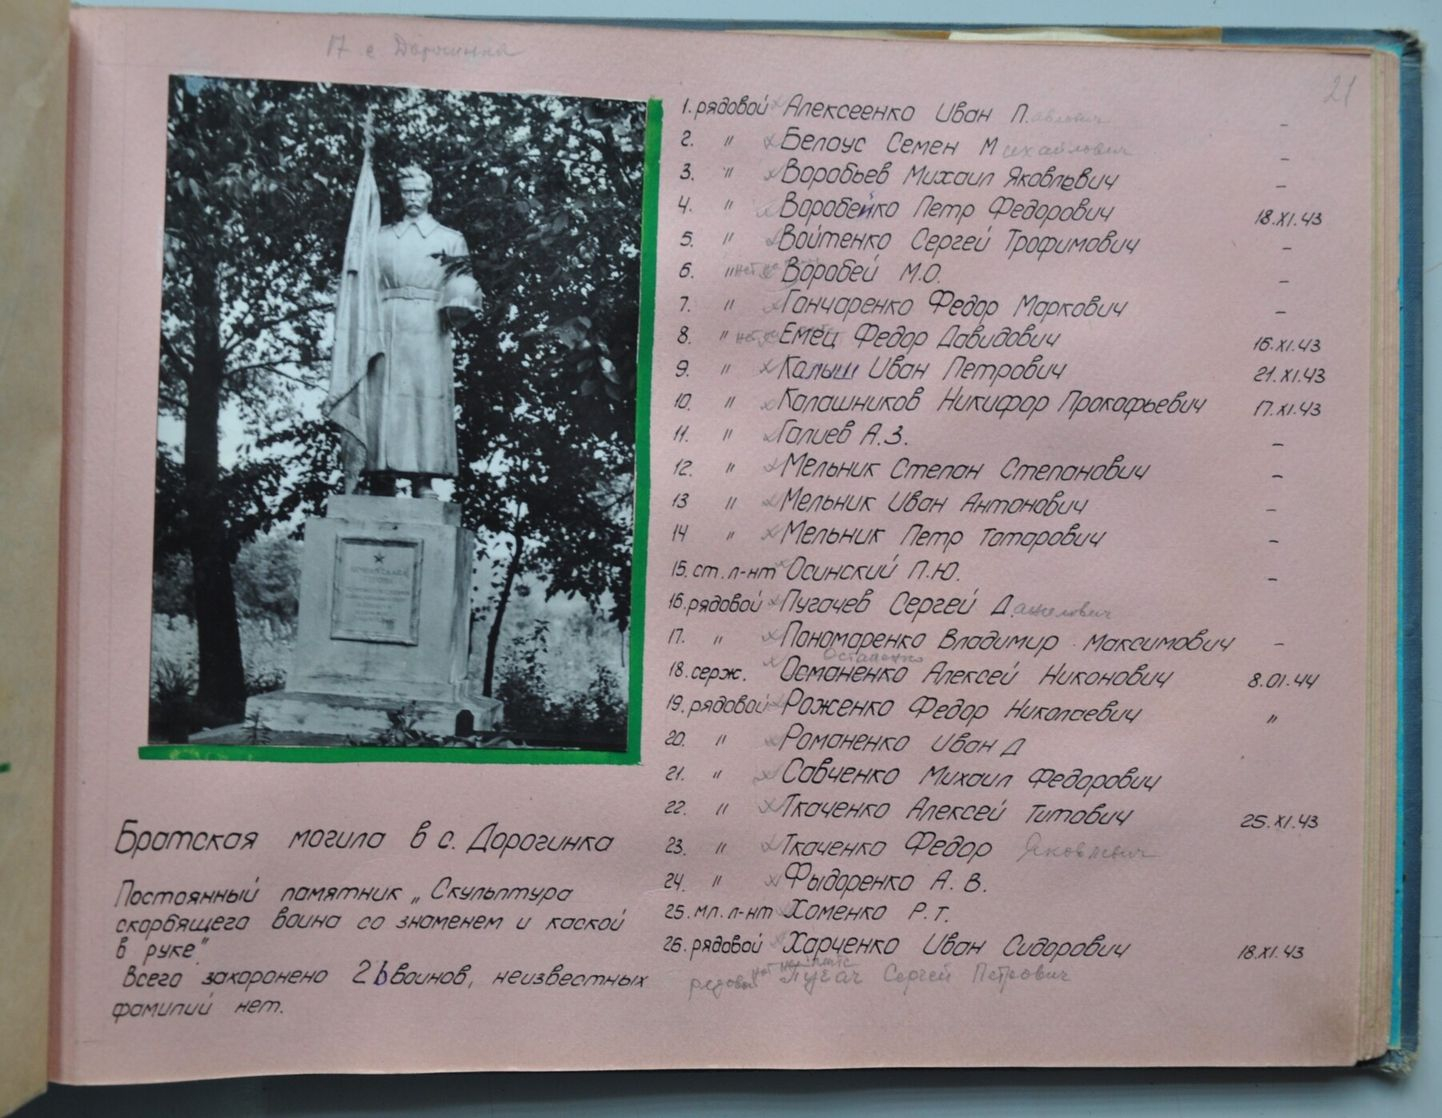 17 с Дорогинка
21
1. рядовой Алексеенко Иван Павлович –
2. " Белоус Семен Михайлович –
3. " Воробьев Михаил Яковлевич –
4. " Воробейко Петр Федорович 18.XI.43
5. " Войтенко Сергей Трофимович –
6. " Воробей М.О. –
7. " Гончаренко Федор Маркович –
8. " Емец Федор Давидович 16.XI.43
9. " Калыш Иван Петрович 21.XI.43
10. " Калашников Никифор Прокофьевич 17.XI.43
11. " Галиев А.З. –
12. " Мельник Степан Степанович –
13 " Мельник Иван Антонович –
14 " Мельник Петр Татарович –
15. ст. л-нт Осинский П.Ю. –
16. рядовой Пугачев Сергей Д
17. " Пономаренко Владимир Максимович –
Остапенко
18. серж. Османенко Алексей Никонович 8.01.44
19. рядовой Роженко Федор Николаевич "
20. " Романенко Иван Д
21. " Савченко Михаил Федорович
22. " Ткаченко Алексей Титович 25.XI.43
23. " Ткаченко Федор Яковлевич
24. " Фыдоренко А. В.
25. мл. л-нт Хоменко Р.Т.
26. рядовой Харченко Иван Сидорович 18.XI.43
рядовой Пугач Сергей Петрович
Братская могила в с. Дорогинка
Постоянный памятник „Скульптура
скорбящего воина со знаменем и каской
в руке".
Всего захоронено 26 воинов, неизвестных
фамилий нет.